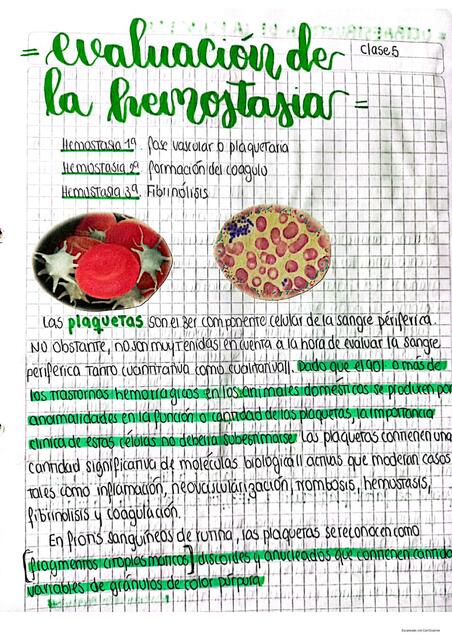 = evaluación de
clase 5
la hemostasia =
Hemostasia 1ª. fase vascular o plaquetaria
Hemostasia 2ª formación del coagulo
Hemostasia 3ª. Fibrinólisis
Las plaquetas son el 3er componente celular de la sangre periferica.
No obstante, no son muy tenidas en cuenta a la hora de evaluar la sangre
periferica tanto cuantitativa como cualitativa
Dado que el 90% o más de
los trastornos hemorrágicos en los animales domésticos se producen por
anormalidades en la función o cantidad de las plaquetas, la importancia
clinica de estas células no debería subestimarse Las plaquetas contienen una
cantidad significativa de moléculas biologica activas que moderan casos
tales como inflamación, neovascularización, trombosis, hemostasis,
fibrinolisis y coagulación.
En frotis sanguíneos de rutina, las plaquetas se reconocen como
[fragmentos citoplasmaticos] discoides y anucleados que contienen cantidad
variables de gránulos de color púrpura.